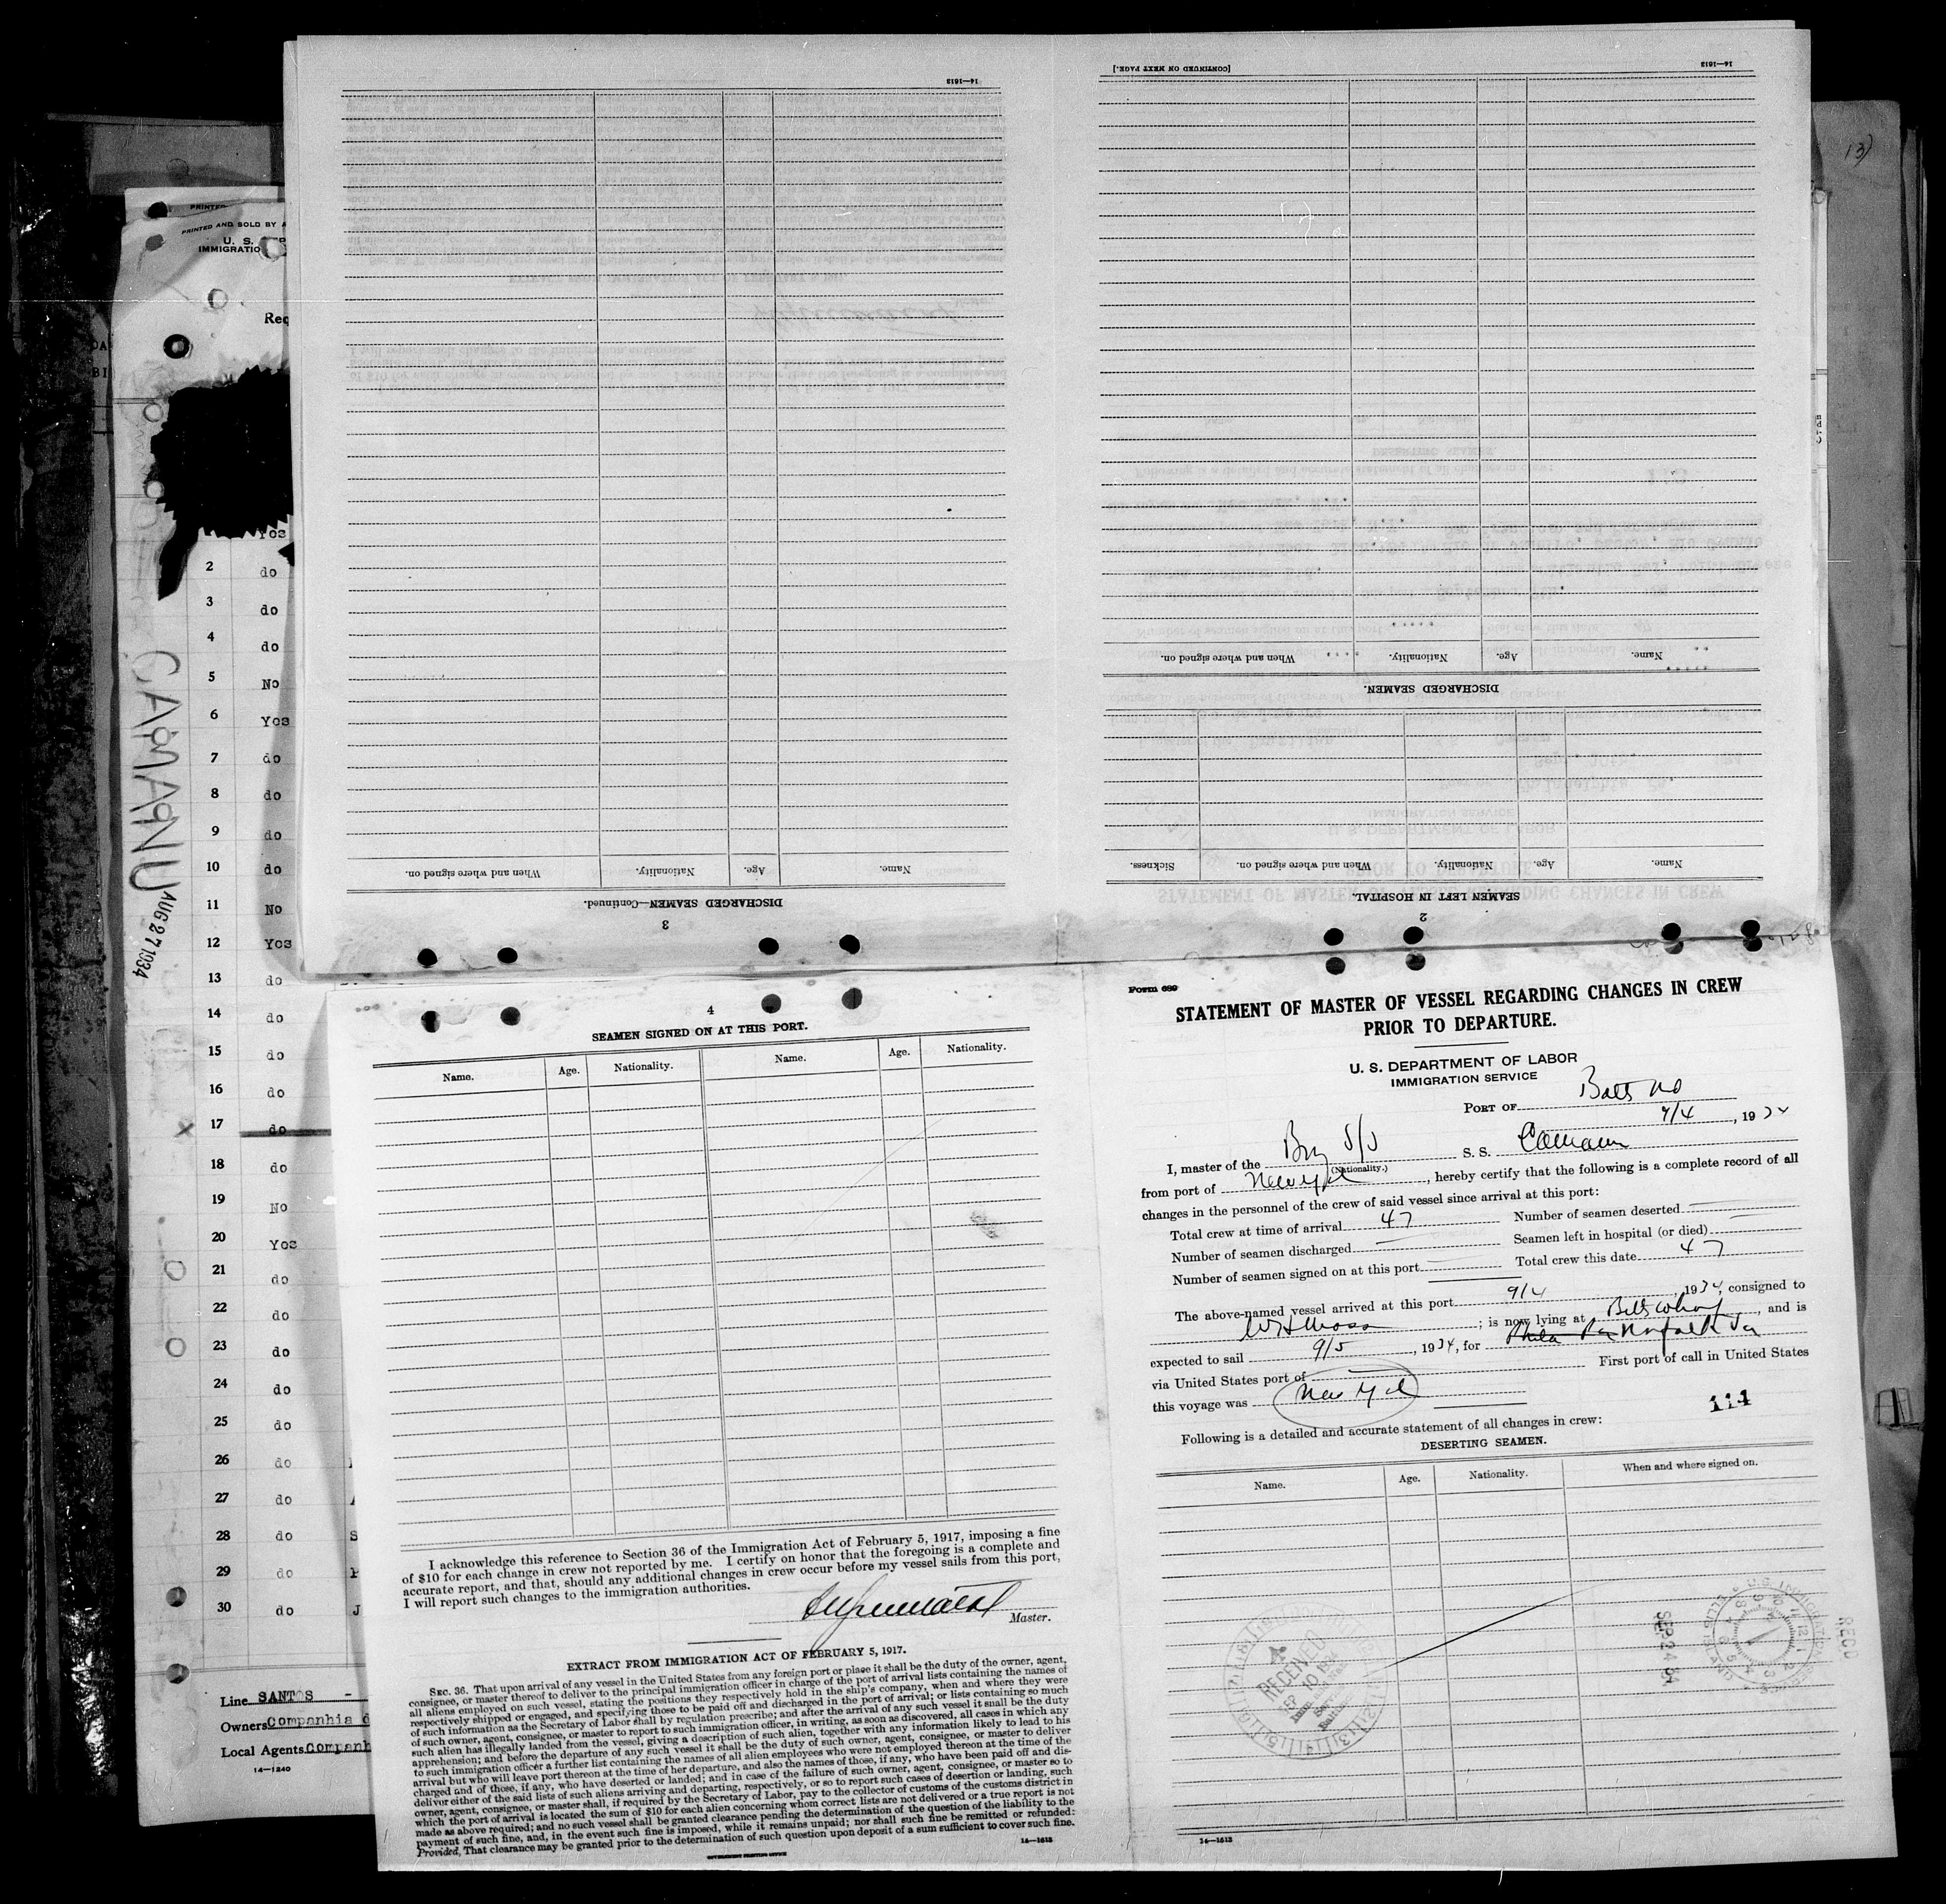 14—1613
[CONTINUED ON NEXT PAGE.]
14—1613
Name.
Age.
Nationality.
When and where signed on.
DISCHARGED SEAMEN.
Name.
Age.
Nationality.
When and where signed on.
Sickness.
SEAMEN LEFT IN HOSPITAL.
2
Name.
Age.
Nationality.
When and where signed on.
DISCHARGED SEAMEN—Continued.
3
13)
PRINTED AND SOLD BY
U. S.
IMMIGRATIO
Req
Yos
2 do
3 do
4 do
5 No
6 Yos
7 do
8 do
9 do
10 do
11 No
12 Yos
13 do
14 do
15 do
16 do
17 do
18 do
19 No
20 Yos
21 do
22 do
23 do
24 do
25 do
26 do
27 do
28 do S
29 do
30 do J
CAMAMU
AUG 27 1934
Line SANTOS -
Owners Companhia d
Local Agents Companh
14—1240
4
SEAMEN SIGNED ON AT THIS PORT.
Name. Age. Nationality. Name. Age. Nationality.
I acknowledge this reference to Section 36 of the Immigration Act of February 5, 1917, imposing a fine
of $10 for each change in crew not reported by me. I certify on honor that the foregoing is a complete and
accurate report, and that, should any additional changes in crew occur before my vessel sails from this port,
I will report such changes to the immigration authorities.
Master.
EXTRACT FROM IMMIGRATION ACT OF FEBRUARY 5, 1917.
SEC. 36. That upon arrival of any vessel in the United States from any foreign port or place it shall be the duty of the owner, agent,
consignee, or master thereof to deliver to the principal immigration officer in charge of the port of arrival lists containing the names of
all aliens employed on such vessel, stating the positions they respectively hold in the ship's company, when and where they were
respectively shipped or engaged, and specifying those to be paid off and discharged in the port of arrival; or lists containing so much
of such information as the Secretary of Labor shall by regulation prescribe; and after the arrival of any such vessel it shall be the duty
of such owner, agent, consignee, or master to report to such immigration officer, in writing, as soon as discovered, all cases in which any
such alien has illegally landed from the vessel, giving a description of such alien, together with any information likely to lead to his
apprehension; and before the departure of any such vessel it shall be the duty of such owner, agent, consignee, or master to deliver
to such immigration officer a further list containing the names of all alien employees who were not employed thereon at the time of the
arrival but who will leave port thereon at the time of her departure, and also the names of those, if any, who have been paid off and dis-
charged and of those, if any, who have deserted or landed; and in case of the failure of such owner, agent, consignee, or master so to
deliver either of the said lists of such aliens arriving and departing, respectively, or so to report such cases of desertion or landing, such
owner, agent, consignee, or master shall, if required by the Secretary of Labor, pay to the collector of customs of the customs district in
which the port of arrival is located the sum of $10 for each alien concerning whom correct lists are not delivered or a true report is not
made as above required; and no such vessel shall be granted clearance pending the determination of the question of the liability to the
payment of such fine, and, in the event such fine is imposed, while it remains unpaid; nor shall such fine be remitted or refunded:
Provided, That clearance may be granted prior to the determination of such question upon deposit of a sum sufficient to cover such fine.
GOVERNMENT PRINTING OFFICE
14—1613
Form 689
STATEMENT OF MASTER OF VESSEL REGARDING CHANGES IN CREW
PRIOR TO DEPARTURE.
U. S. DEPARTMENT OF LABOR
IMMIGRATION SERVICE
PORT OF Balto Md
9/4, 1934
I, master of the Braz S/S S. S. Camamu
(Nationality.)
from port of New York, hereby certify that the following is a complete record of all
changes in the personnel of the crew of said vessel since arrival at this port:
Total crew at time of arrival 47 Number of seamen deserted
Number of seamen discharged Seamen left in hospital (or died)
Number of seamen signed on at this port Total crew this date 47
The above-named vessel arrived at this port 9/4, 1934, consigned to
; is now lying at Belts Wharf, and is
expected to sail 9/5, 1934, for Phila Pa Norfolk Va
via United States port of First port of call in United States
this voyage was New York
111
Following is a detailed and accurate statement of all changes in crew:
DESERTING SEAMEN.
Name. Age. Nationality. When and where signed on.
RECEIVED
SEP 10 1934
SEP 24 34
REC'D
14—1613